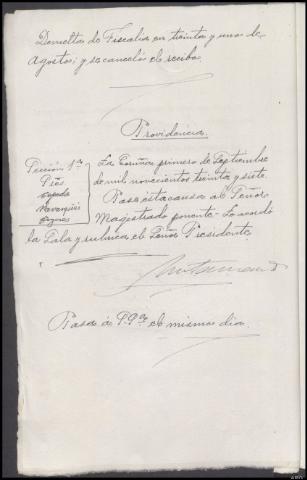 Devuelta de Fiscalía en treinta y uno de
Agosto; y se canceló el recibo.
Providencia.
Sección 1ª
La Coruña primero de Septiembre
de mil novecientos treinta y siete
Pase esta causa al Señor
Magistrado ponente. Lo acordó
la Sala y rubrica el Señor Presidente
Pasa á el mismo día.